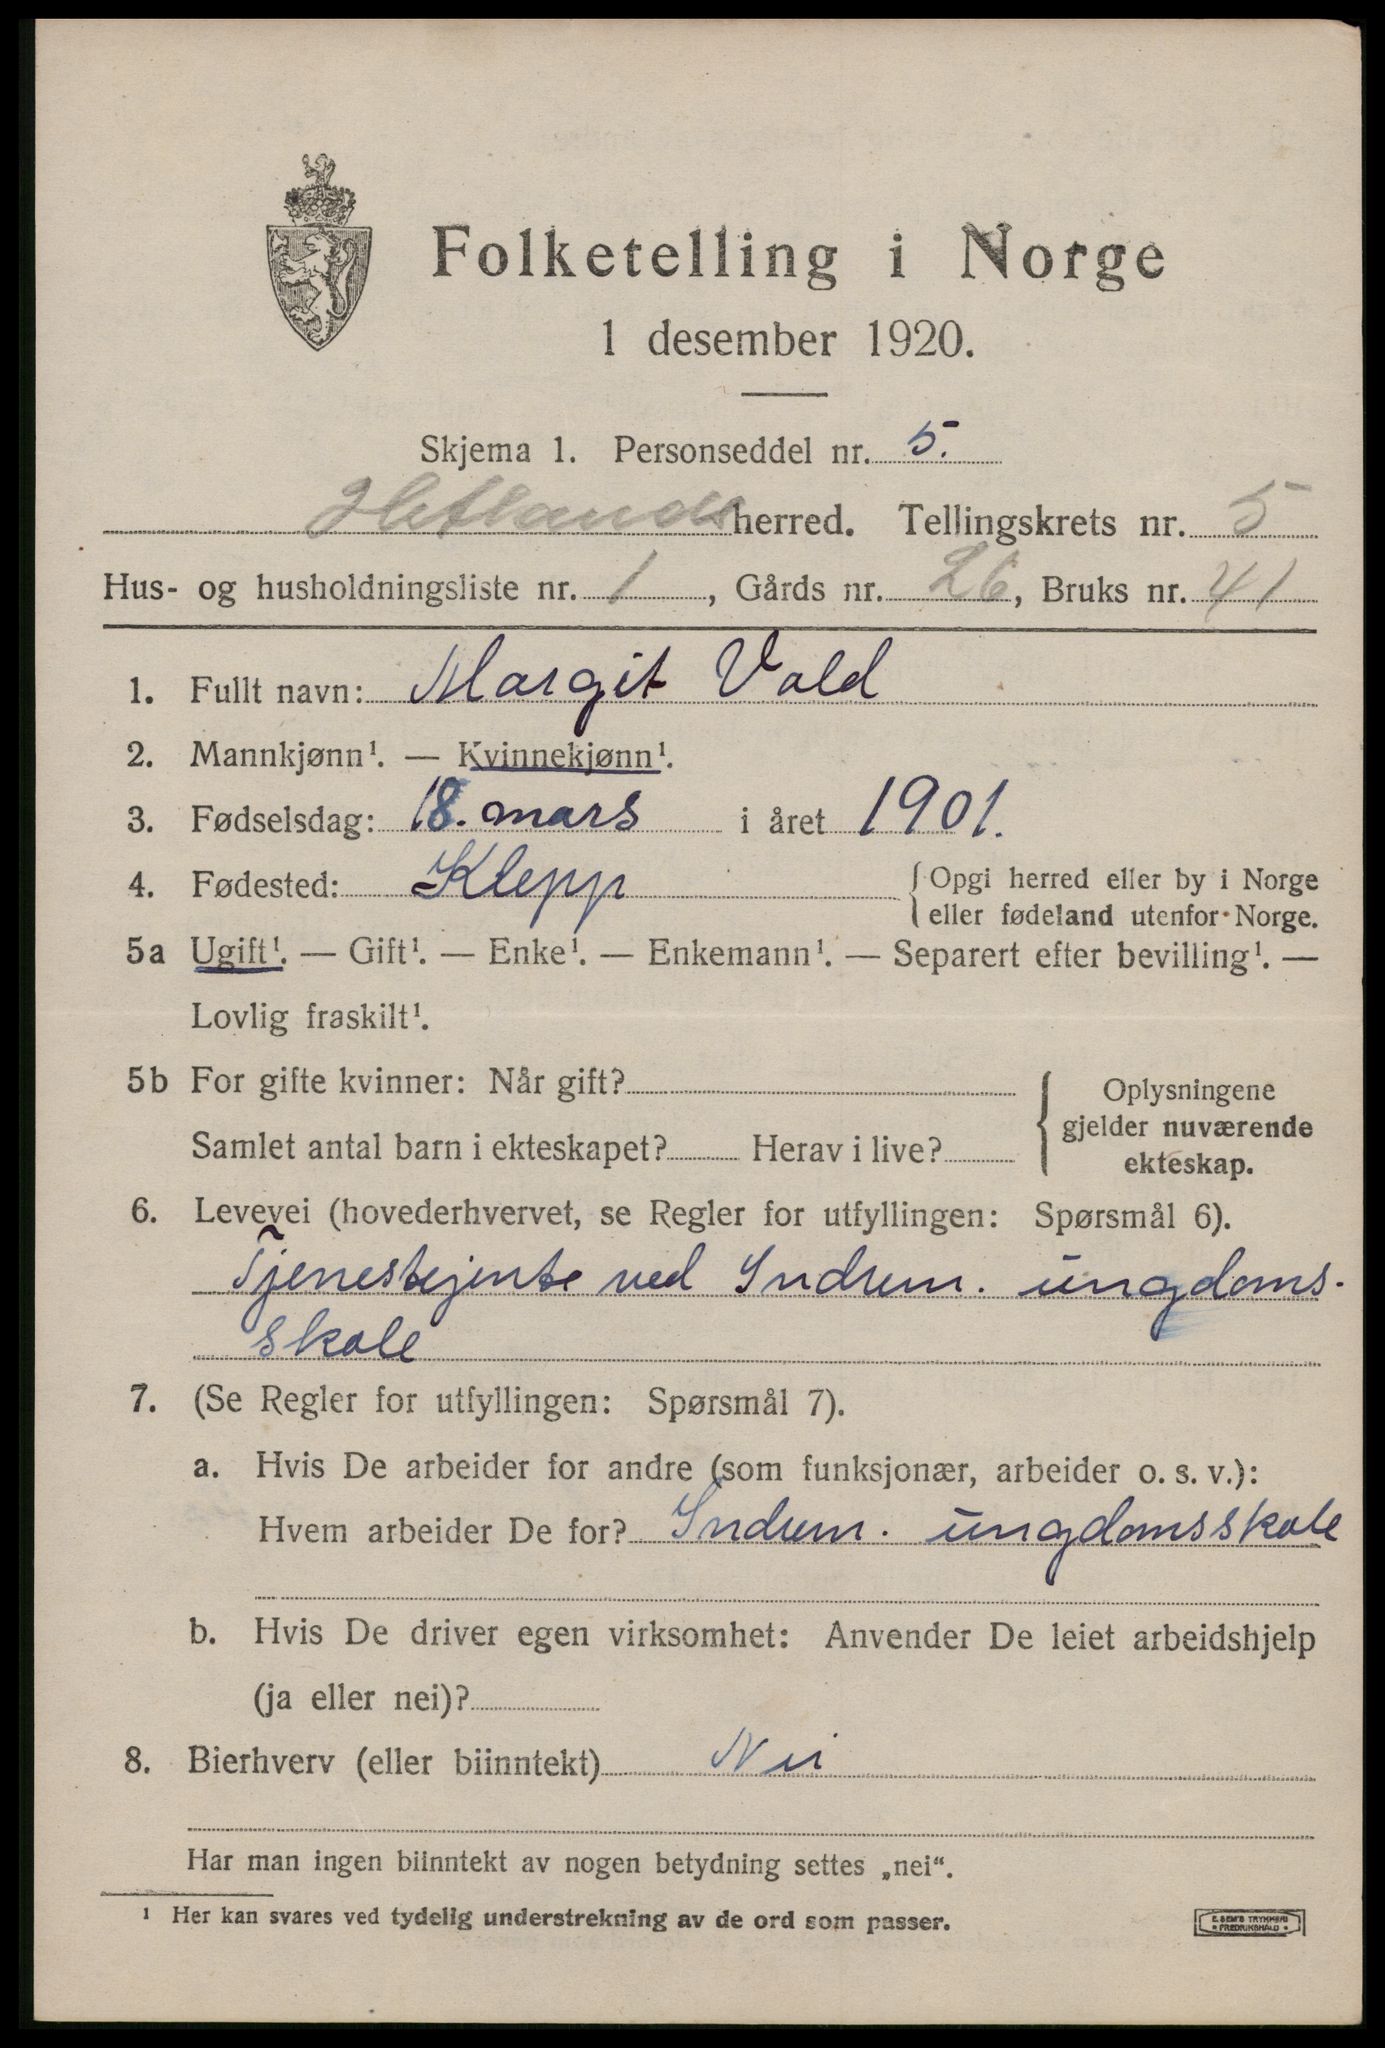 Folketelling i Norge
1 desember 1920.
Skjema 1. Personseddel nr. 5.
Hetlands herred. Tellingskrets nr. 5
Hus- og husholdningsliste nr. 1, Gårds nr. 26, Bruks nr. 41
1. Fullt navn: Margit Vold
2. Mannkjønn¹. — Kvinnekjønn¹.
3. Fødselsdag: 18. mars i året 1901.
4. Fødested: Klepp { Opgi herred eller by i Norge
eller fødeland utenfor Norge.
5a Ugift¹. — Gift¹. — Enke¹. — Enkemann¹. — Separert efter bevilling¹. —
Lovlig fraskilt¹.
5b For gifte kvinner: Når gift?
Samlet antal barn i ekteskapet? Herav i live?
{ Oplysningene
gjelder nuværende
ekteskap.
6. Levevei (hovederhvervet, se Regler for utfyllingen: Spørsmål 6).
Tjenestejente ved Indrem. ungdoms-
skole
7. (Se Regler for utfyllingen: Spørsmål 7).
a. Hvis De arbeider for andre (som funksjonær, arbeider o. s. v.):
Hvem arbeider De for? Indrem. ungdomsskole
b. Hvis De driver egen virksomhet: Anvender De leiet arbeidshjelp
(ja eller nei)?
8. Bierhverv (eller biinntekt) Nei
Har man ingen biinntekt av nogen betydning settes „nei“.
¹ Her kan svares ved tydelig understrekning av de ord som passer.
E. SEM'S TRYKKERI
FREDRIKSHALD